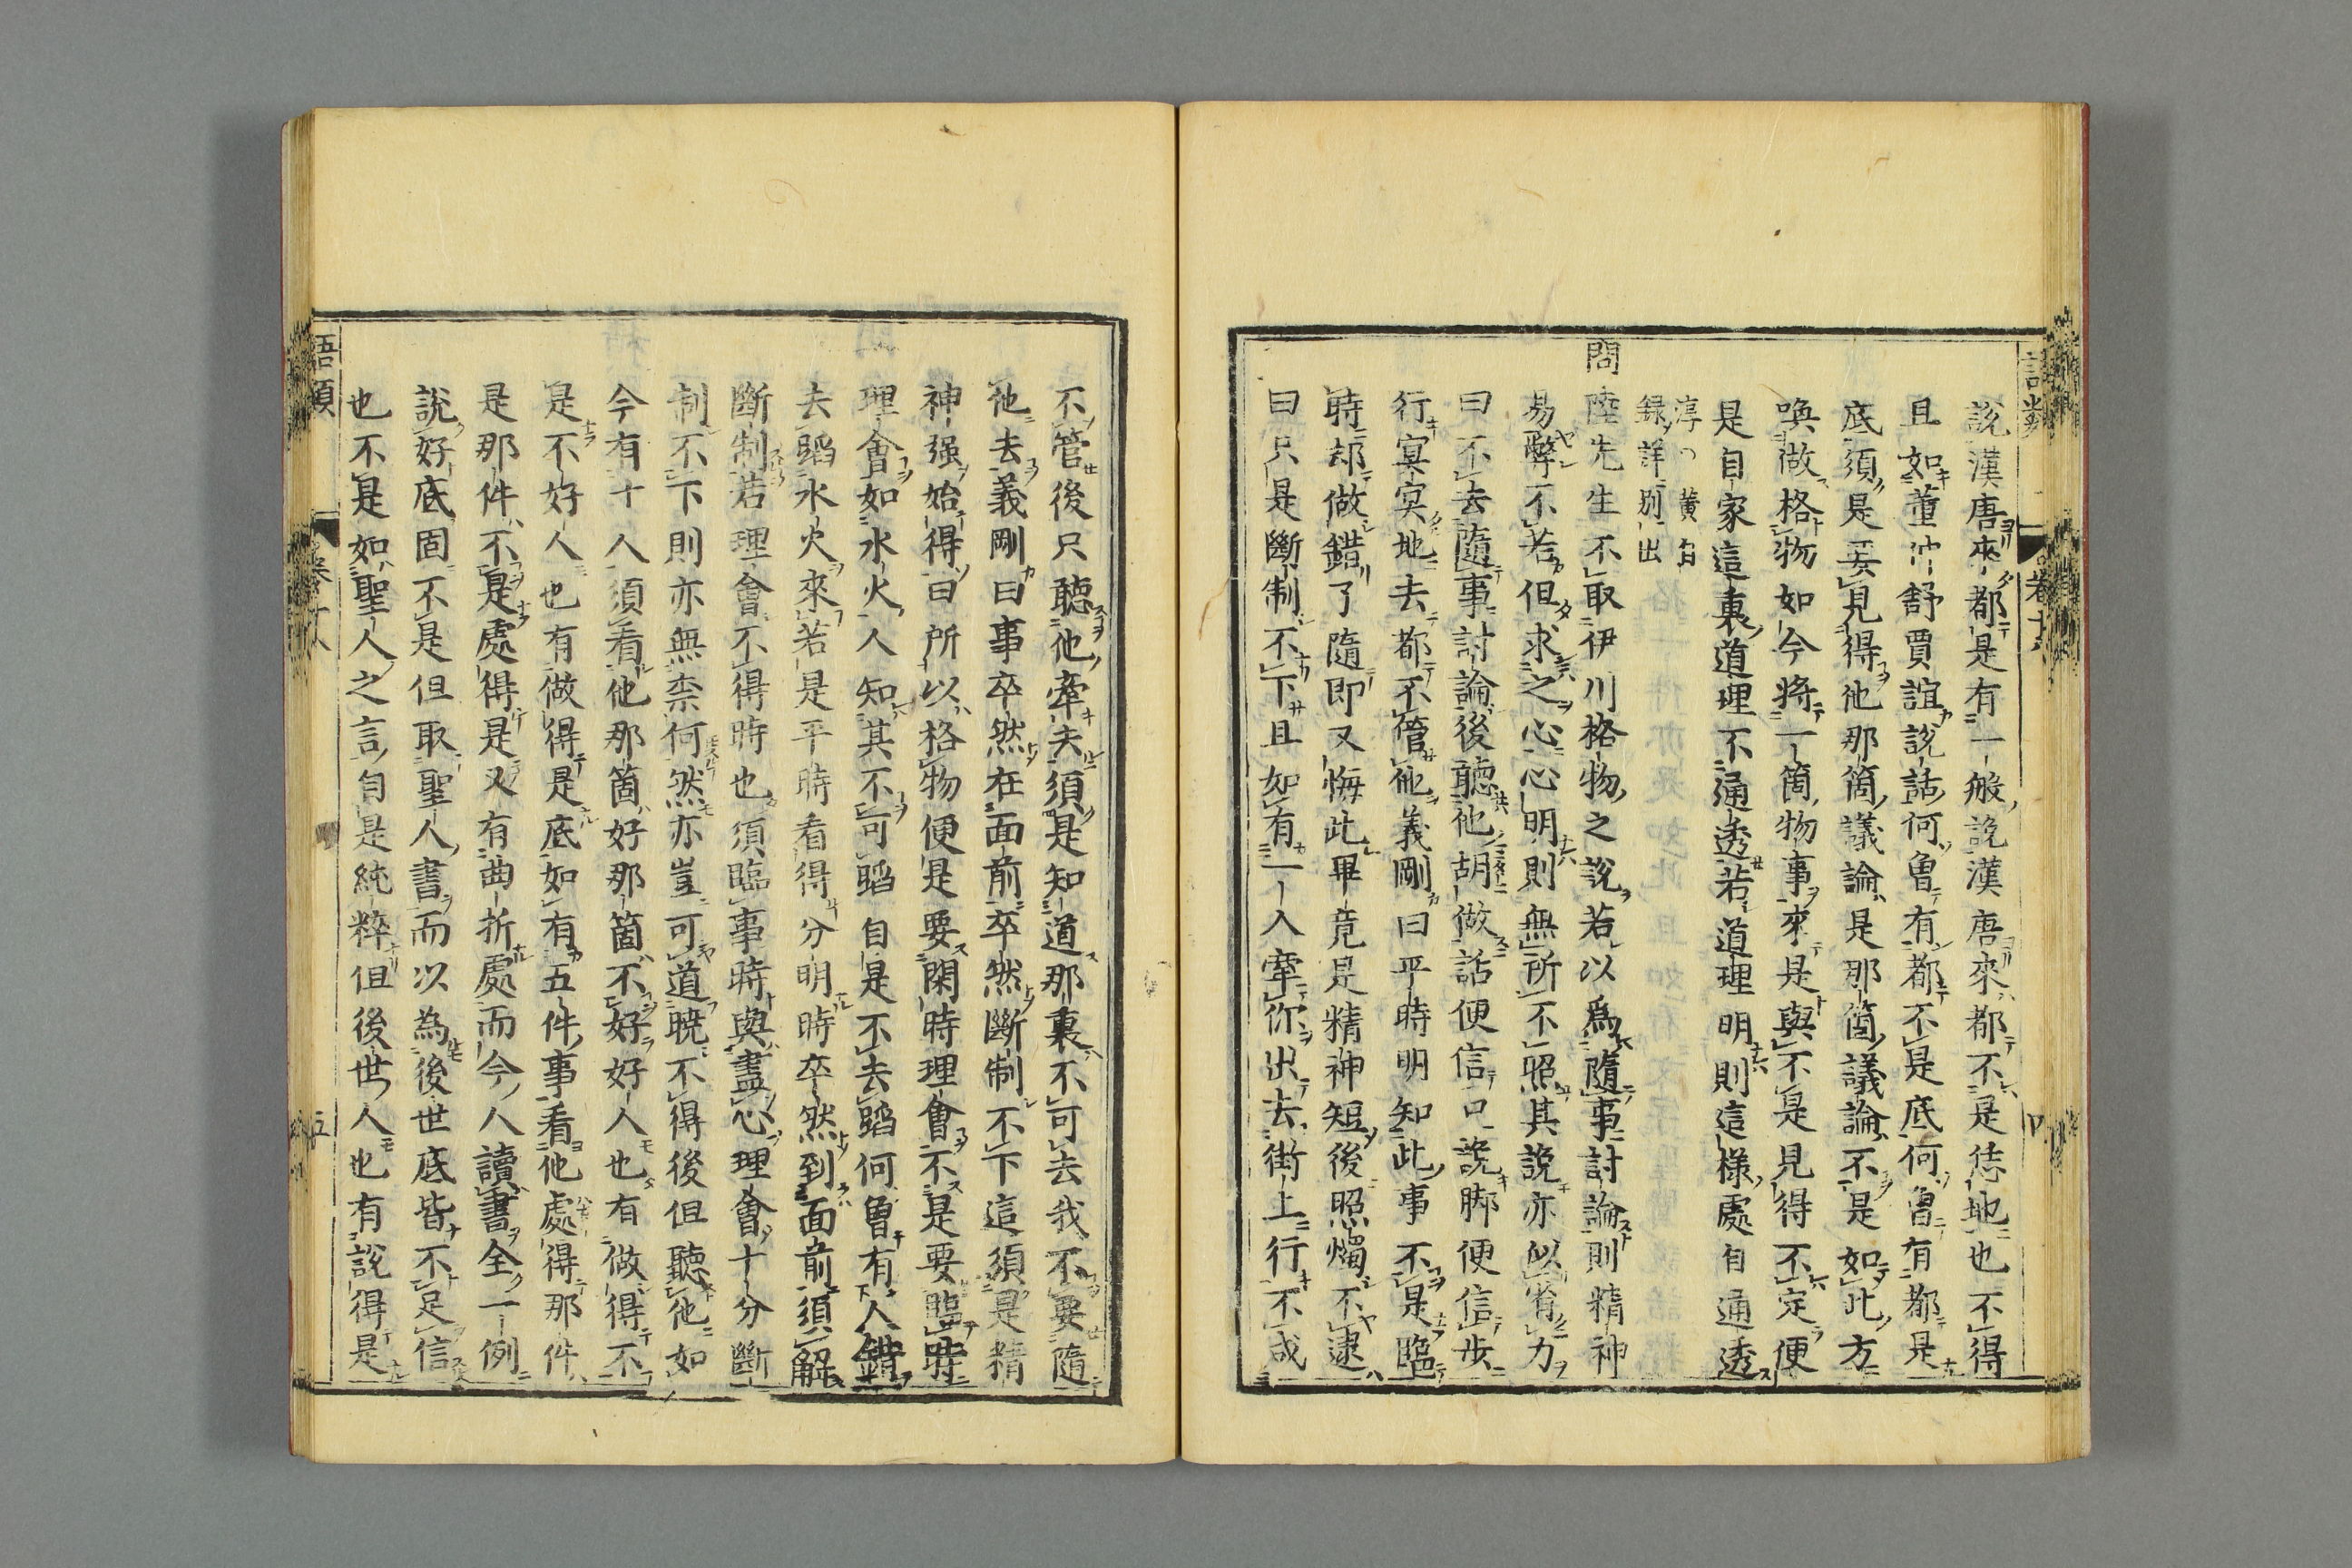 說漢唐來都是有一般說漢唐來都不是恁地也不得
且如董仲舒賈誼說話何曾有都不是底何曾有都是
底須是要見得他那箇議論是那箇議論不是如此方
喚做格物如今將一箇物事來是與不是見得不定便
是自家這裏道理不通透若道理明則這樣處自通透
淳○黃自
録詳別出
問陸先生不取伊川格物之說若以爲隨事討論則精神
易弊不若但求之心心明則無所不照其說亦似省力
曰不去隨事討論後聽他胡做話便信口說脚便信步
行冥冥地去都不管他義剛曰平時明知此事不是臨
時却做錯了隨即又悔此畢竟是精神短後照燭不逮
曰只是斷制不下且如有一人牽你出去街上行不成
不管後只聽他牽去須是知道那裏不可去我不要隨
他去義剛曰事卒然在面前卒然斷制不下這須是精
神强始得曰所以格物便是要閑時理會不是要臨時
理會如水火人知其不可蹈自是不去蹈何曾有人錯
去蹈水火來若是平時看得分明時卒然到面前須解
斷制若理會不得時也須臨事時與盡心理會十分斷
制不下則亦無柰何然亦豈可道曉不得後但聽他如
今有十人須看他那箇好那箇不好好人也有做得不
是不好人也有做得是底如有五件事看他處得那件
是那件不是處得是又有曲折處而今人讀書全一例
說好底固不是但取聖人書而以為後世底皆不足信
也不是如聖人之言自是純粹但後世人也有說得是
語類
卷十八
五